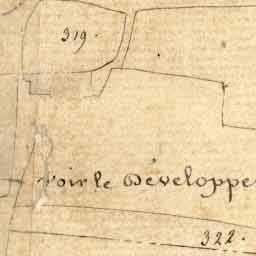 319.
voir le Développe
322.